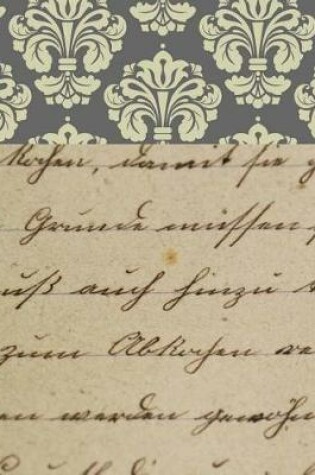 kochen, damit sie
Grunde müssen
auch hinzu
zum Abkochen
werden gewöhn